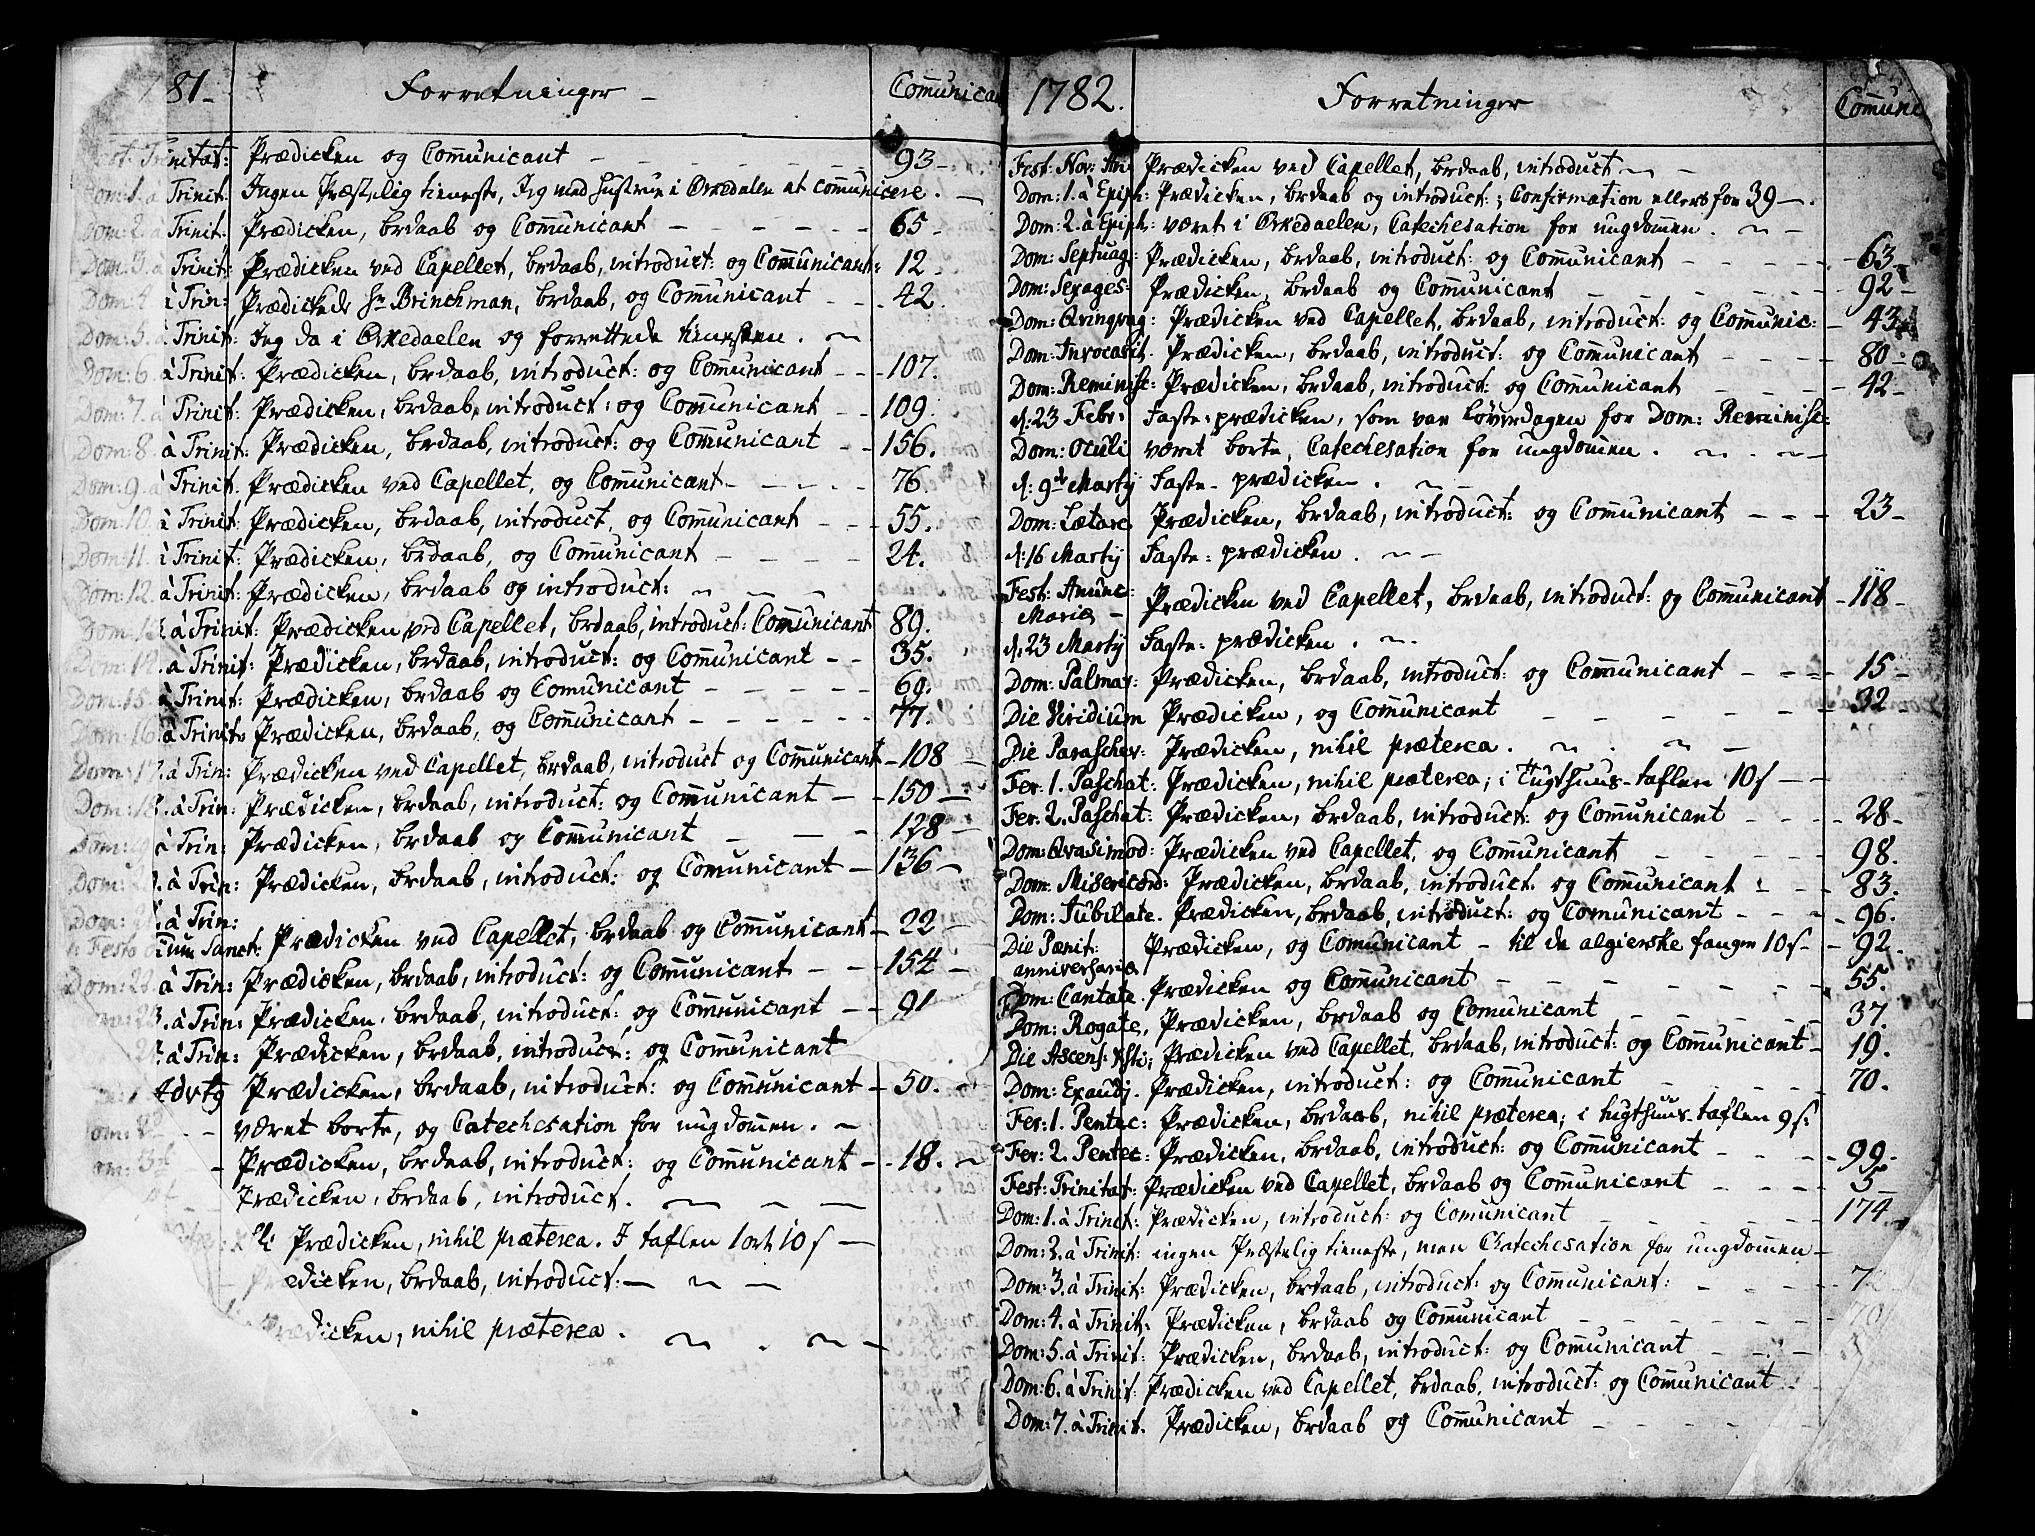 81 - Forretninger - Com̄unica
Trinitat: Prædicken og Com̄unicant - 93 -
Dom: 1. à Trinit: Ingen Præstelig tieneste, Jeg med Hustrue i Orkedalen at com̄unicere.
Dom: 2. à Trinit: Prædicken, brdaab og Com̄unicant - 65 -
Dom: 3. à Trinit: Prædicken ved Capellet, brdaab, introduct: og Com̄unicant: 12
Dom: 4 à Trin: Prædickede Hr Brinchman, brdaab, og Com̄unicant - 42.
Dom: 5. à Trinit: Jeg da i Orkedaelen og forrettede tienesten.
Dom: 6 à Trinit: Prædicken, brdaab, introduct: og Com̄unicant - 107.
Dom: 7. à Trinit: Prædicken, brdaab, introduct: og Com̄unicant - 109.
Dom: 8. à Trinit: Prædicken, brdaab, introduct: og Com̄unicant - 156.
Dom: 9. à Trinit: Prædicken ved Capellet, og Com̄unicant - 76.
Dom: 10. à Trinit: Prædicken, brdaab, introduct, og Com̄unicant - 55.
Dom: 11. à Trinit: Prædicken, brdaab, og Com̄unicant - 24.
Dom: 12. à Trinit: Prædicken, brdaab og introduct:
Dom: 13. à Trinit: Prædicken ved Capellet, brdaab, introduct: Com̄unicant 89.
Dom: 14. à Trinit: Prædicken, brdaab, introduct: og Com̄unicant - 35.
Dom: 15. à Trinit: Prædicken, brdaab og Comunicant - 69.
Dom: 16. à Trinit: Prædicken, brdaab, og Com̄unicant - 77.
Dom: 17. à Trin: Prædicken ved Capellet, brdaab, introduct og Com̄unicant - 108
Dom: 18. à Trin: Prædicken, brdaab, introduct: og Com̄unicant - 150 -
Dom: 19 à Trin: Prædicken, brdaab og Com̄unicant - 128 -
Dom: 20. à Trin: Prædicken, brdaab, introduct: og Comunicant - 136 -
Dom: 21. à Trin:
Festo Om̄ium Sanct: Prædicken ved Capellet, brdaab og Com̄unicant - 22 -
Dom: 22. à Trin: Prædicken, brdaab, introduct: og Com̄unicant - 154 -
23. à Trin: Prædicken, brdaab, introduct: og Com̄unicant - 91
à Trin: Prædicken, brdaab, introduct: og Com̄unicant
Advtg Prædicken, brdaab, introduct: og Com̄unicant - 50.
været borte, og Catechesation for ungdom̄en.
Prædicken, brdaab, introduct: og Com̄unicant - 18.
Prædicken, brdaab, introduct.
Prædicken, nihil præterea. I taflen 1 ort 10 s
Prædicken, brdaab, introduct:
Prædicken, nihil præterea.
1782. Forretninger Com̄unic
Fest: Nov: Ani Prædicken ved Capellet, brdaab, introduct
Dom: 1. à Epiph: Prædicken, brdaab og introduct:; Confirmation ellers for 39 -.
Dom: 2. à Epiph: været i Orkedaelen, Catechesation for ungdom̄en.
Dom: Septuag: Prædicken, brdaab, introduct: og Com̄unicant - 63 -
Dom: Sexages: Prædicken, brdaab og Com̄unicant - 92 -
Dom: Qvinqvag: Prædicken ved Capellet, brdaab, introduct: og Com̄unic: - 43
Dom: Invocavit. Prædicken, brdaab, introduct: og Com̄unicant - 80 -
Dom: Reminisc: Prædicken, brdaab, introduct: og Com̄unicant - 42 -
d: 23 Febr: Faste-prædicken, som var Løverdagen for Dom: Reminisc:
Dom: Oculi været borte, Catechesation for ungdom̄en.
d: 9de Martij Faste-prædicken.
Dom: Lætare Prædicken, brdaab, introduct: og Com̄unicant - 23 -
d: 16 Martij Faste-prædicken.
Fest: Anunc:
Mariæ - Prædicken ved Capellet, brdaab, introduct: og Com̄unicant - 118 -
d: 23 Martij Faste-prædicken.
Dom: Palmar: Prædicken, brdaab, introduct: og Com̄unicant - 15 -
Die Viridium Prædicken, og Com̄unicant - 32
Die Paraschev: Prædicken, nihil præterea.
Fer: 1. Paschat: Prædicken, nihil præterea; i Tugthuus-taflen 10 s
Fer: 2. Paschat: Prædicken, brdaab, introduct: og Com̄unicant - 28 -
Dom: Qvasimod: Prædicken ved Capellet, og Com̄unicant - 98.
Dom: Misericord: Prædicken, brdaab, introduct: og Com̄unicant - 83.
Dom: Jubilate. Prædicken, brdaab, introduct: og Comunicant - 96.
Die Pænit:
anniversaria Prædicken, og Com̄unicant - til de algierske fanger 10 s - 92.
Dom: Cantate. Prædicken og Com̄unicant - 55.
Dom: Rogate, Prædicken, brdaab og Comunicant - 37.
Die Ascens: Xsti; Prædicken ved Capellet, brdaab, introduct: og Com̄unicant - 19.
Dom: Exaudj. Prædicken, introduct: og Com̄unicant - 70.
Fer: 1. Pentec: Prædicken, brdaab, nihil præterea; i tugthuus-taflen 9 s:
Fer: 2. Pentec: Prædicken, brdaab, introduct: og Com̄unicant - 99 -
Fest: Trinitat: Prædicken ved Capellet, brdaab og Com̄unicant - 5 -
Dom: 1. à Trinit: Prædicken, introduct: og Comunicant - 174
Dom: 2. à Trinit: ingen Præstelig tieneste, men Chatechesation for ungdom̄en -
Dom: 3. à Trinit: Prædicken, brdaab, introduct: og Com̄unicant:
Dom: 4. à Trinit: Prædicken, brdaab og Com̄unicant
Dom: 5. à Trinit: Prædicken, brdaab, introduct: og Com̄unicant
Dom: 6. à Trinit: Prædicken ved Capellet, brdaab, introduct: og Com̄unicant
Dom: 7. à Trinit. Prædicken, brdaab og Com̄unicant